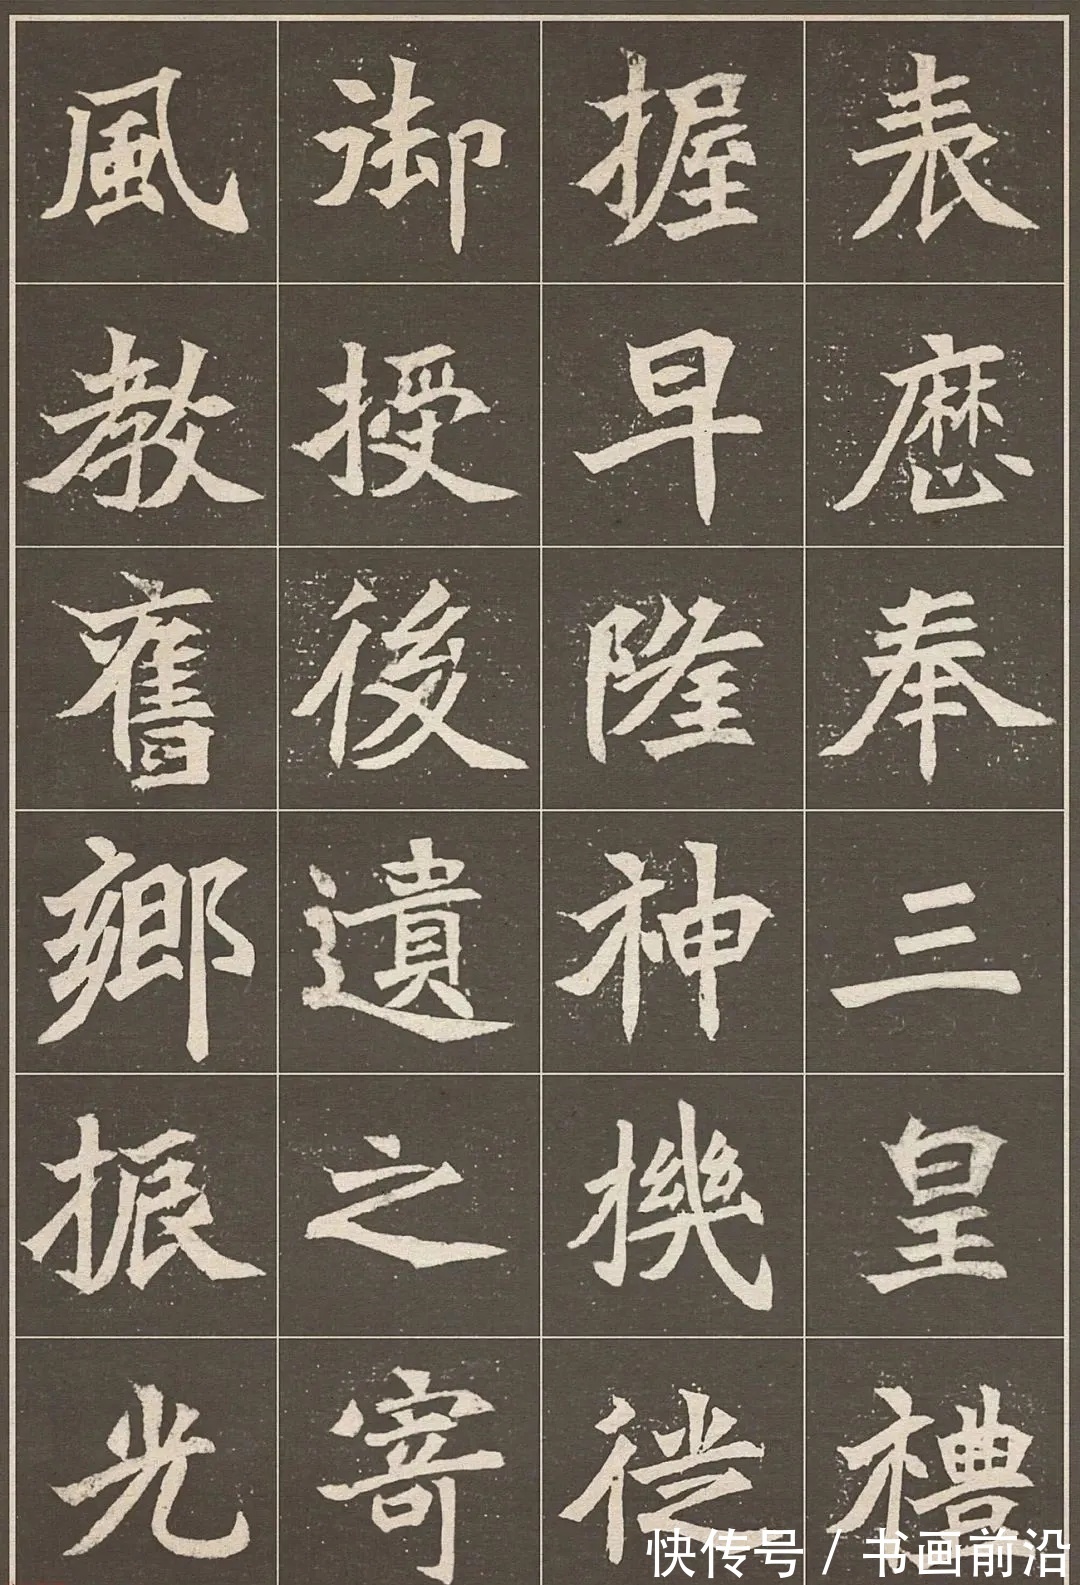 表歷奉三皇禮
握早隆神機徙
御授後遺之寄
風教舊鄉振光
快传号 / 书画前沿